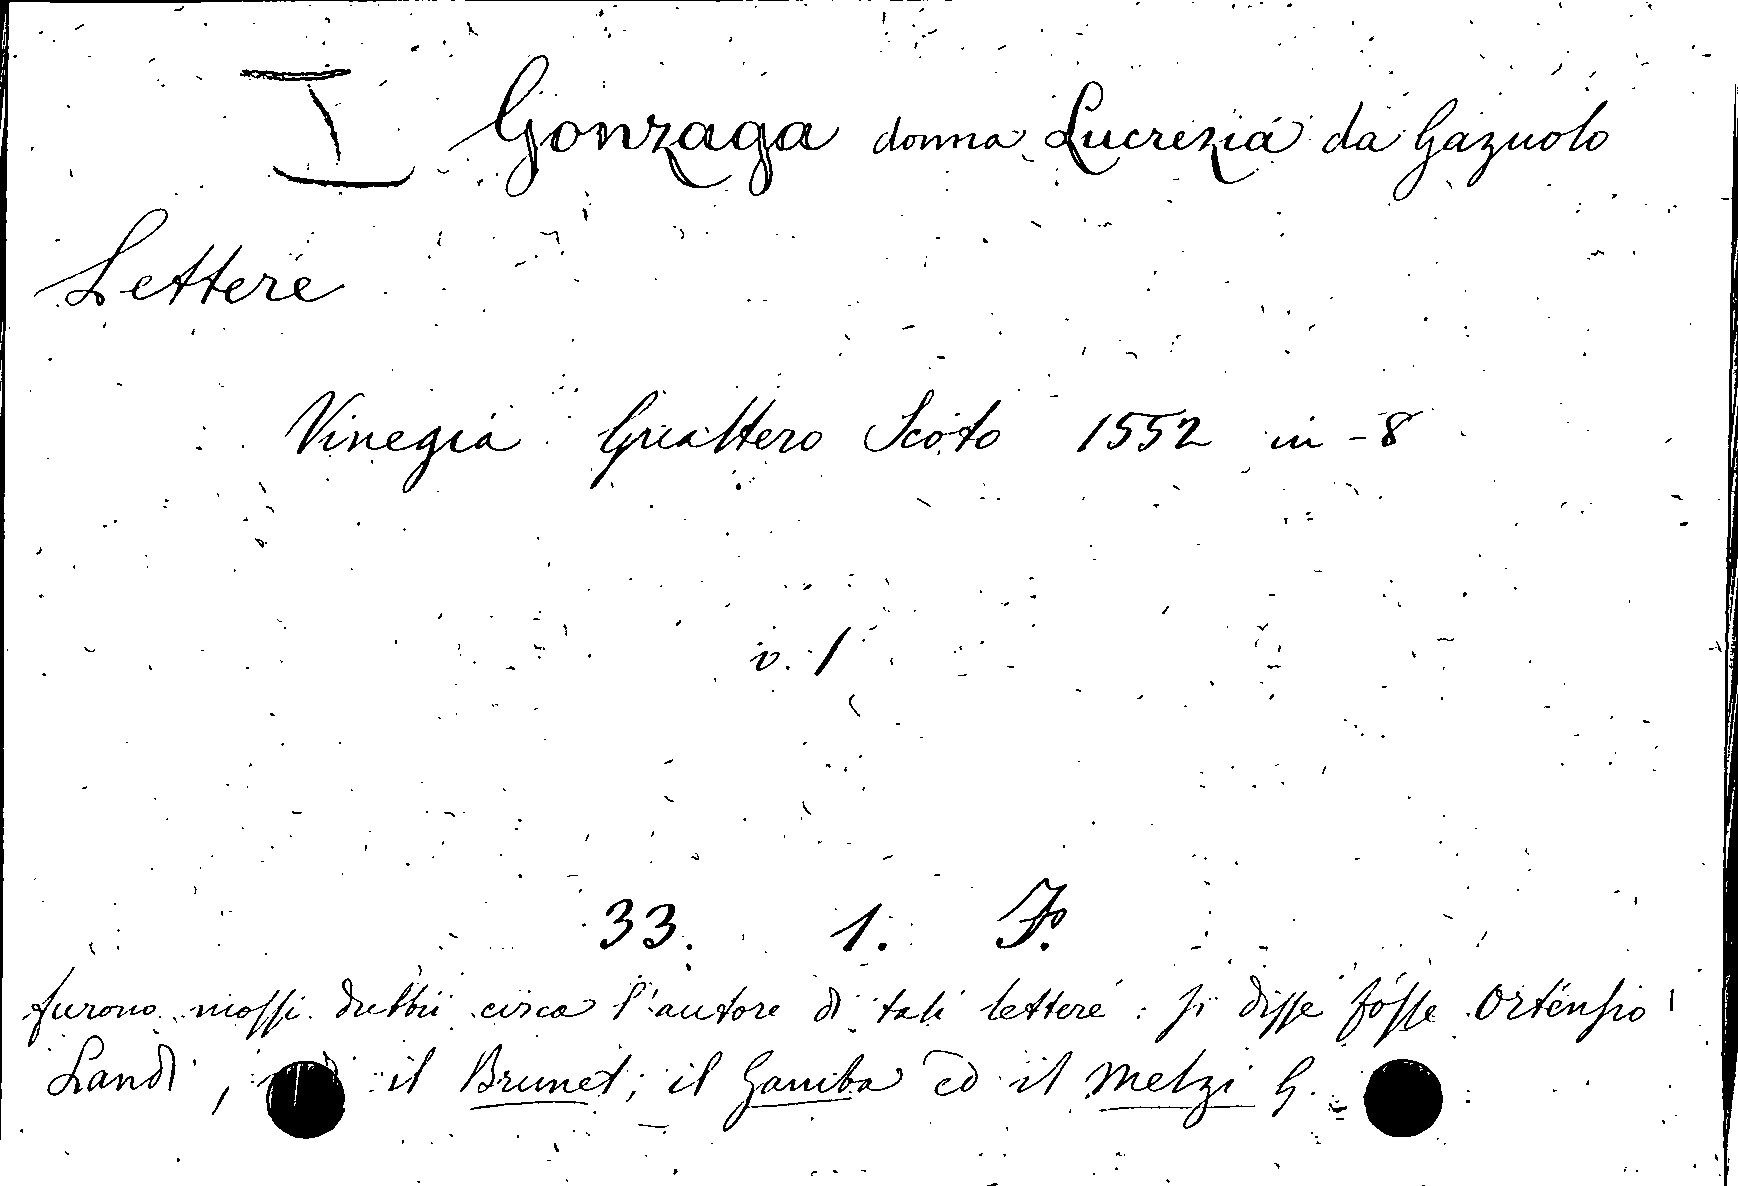 I Gonzaga donna Lucrezia da Gazuolo
Lettere
Vinegia Gualtero Scoto 1552 in-8
v. 1
33. 1. F.
furono mossi dubbii circa l'autore di tali lettere: si disse fosse Ortensio
Landi, il Brunet; il Gamba ed il Melzi G.